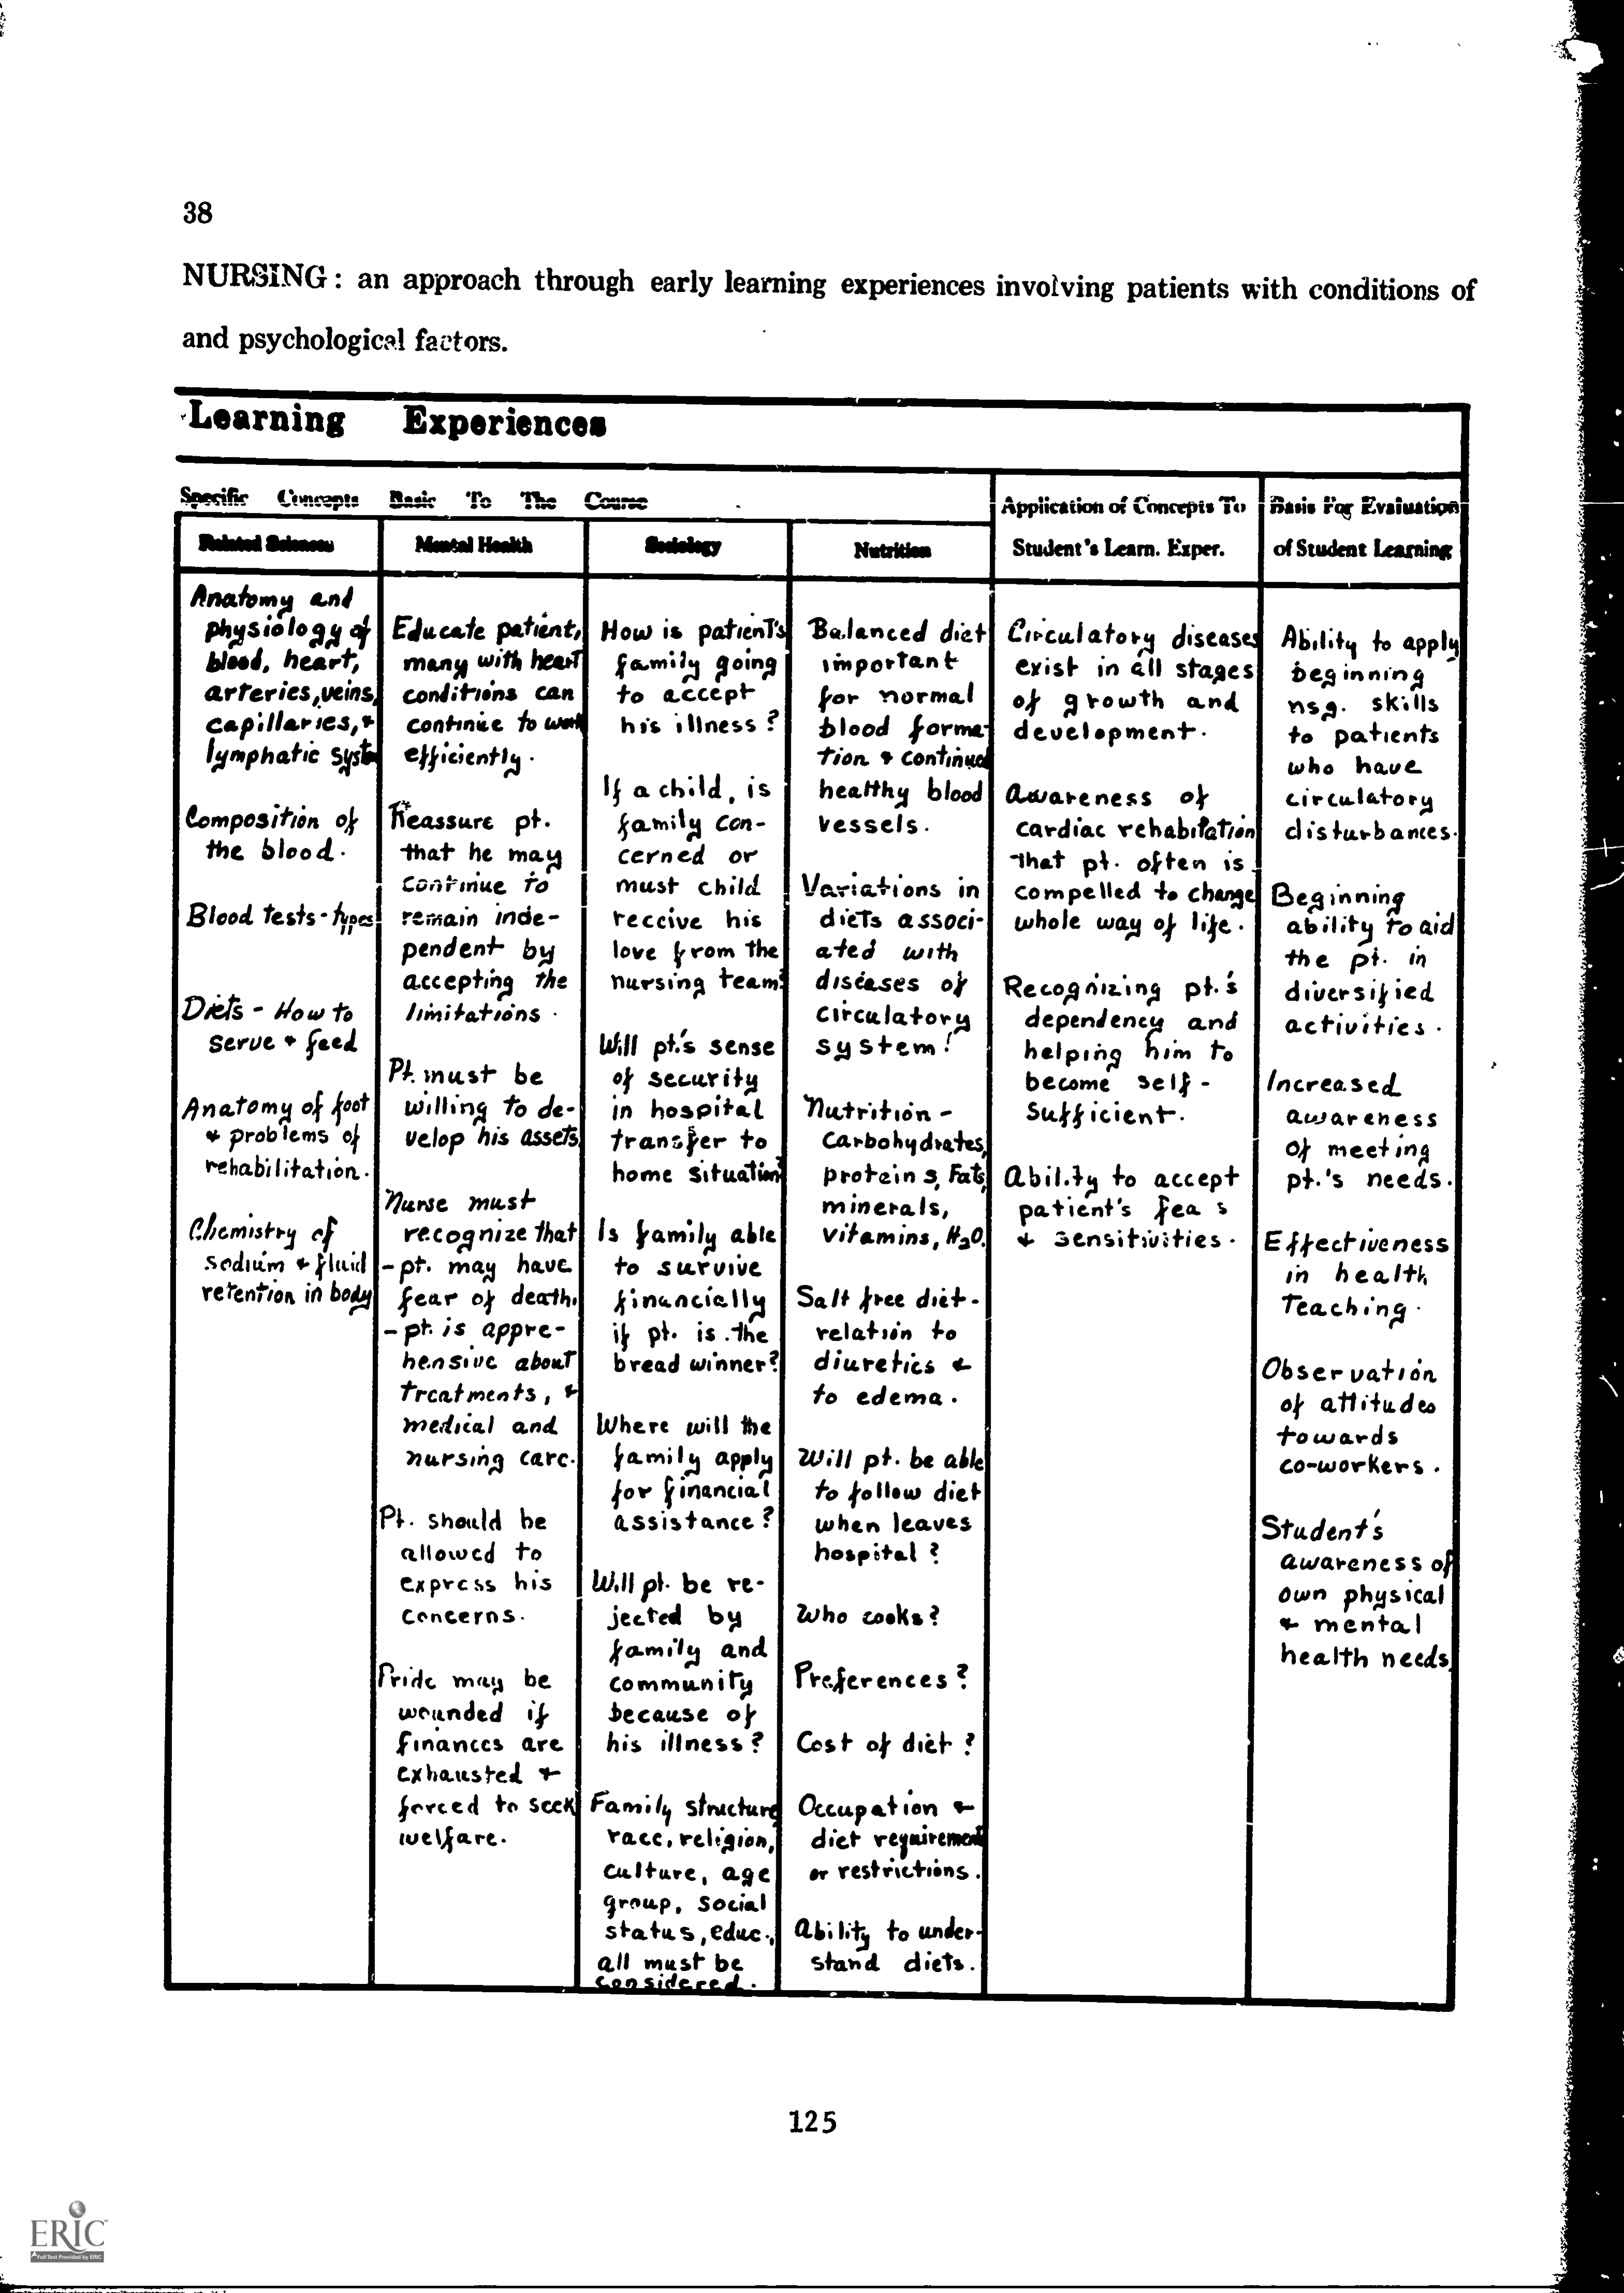 38
NURSING: an approach through early learning experiences involving patients with conditions of
and psychological factors.
Learning Experiences
Specific Concepts Basic To The Course
Related Sciences
Anatomy and
physiology of
blood, heart,
arteries, veins,
capillaries, &
lymphatic syst
Composition of
the blood.
Blood tests - types
Diets - How to
serve & feed
Anatomy of foot
& problems of
rehabilitation.
Chemistry of
sodium & fluid
retention in body
Mental Health
Educate patient,
many with heart
conditions can
continue to work
efficiently.
Reassure pt.
that he may
continue to
remain inde-
pendent by
accepting the
limitations.
Pt. must be
willing to de-
velop his assets
Nurse must
recognize that
- pt. may have
fear of death,
- pt. is appre-
hensive about
treatments, &
medical and
nursing care.
Pt. should be
allowed to
express his
concerns.
Pride may be
wounded if
finances are
exhausted &
forced to seek
welfare.
Sociology
How is patient's
family going
to accept
his illness?
If a child, is
family con-
cerned or
must child
receive his
love from the
nursing team?
Will pt.'s sense
of security
in hospital
transfer to
home situation?
Is family able
to survive
financially
if pt. is the
bread winner?
Where will the
family apply
for financial
assistance?
Will pt. be re-
jected by
family and
community
because of
his illness?
Family structure
race, religion,
culture, age
group, social
status, educ.,
all must be
considered.
Nutrition
Balanced diet
important
for normal
blood forma-
tion & continued
healthy blood
vessels.
Variations in
diets associ-
ated with
diseases of
circulatory
system!
Nutrition -
Carbohydrates,
proteins, Fats,
minerals,
vitamins, H2O.
Salt free diet -
relation to
diuretics &
to edema.
Will pt. be able
to follow diet
when leaves
hospital?
Who cooks?
Preferences?
Cost of diet?
Occupation &
diet requirement
or restrictions.
Ability to under-
stand diets.
Application of Concepts To
Student's Learn. Exper.
Circulatory diseases
exist in all stages
of growth and
development.
Awareness of
cardiac rehabitation
that pt. often is
compelled to change
whole way of life.
Recognizing pt.'s
dependency and
helping him to
become self-
sufficient.
Ability to accept
patient's fea s
& sensitivities.
Basis For Evaluation
of Student Learning
Ability to apply
beginning
nsg. skills
to patients
who have
circulatory
disturbances.
Beginning
ability to aid
the pt. in
diversified
activities.
Increased
awareness
of meeting
pt.'s needs.
Effectiveness
in health
Teaching.
Observation
of attitudes
towards
co-workers.
Student's
awareness of
own physical
& mental
health needs
125
ERIC
Full Text Provided by ERIC